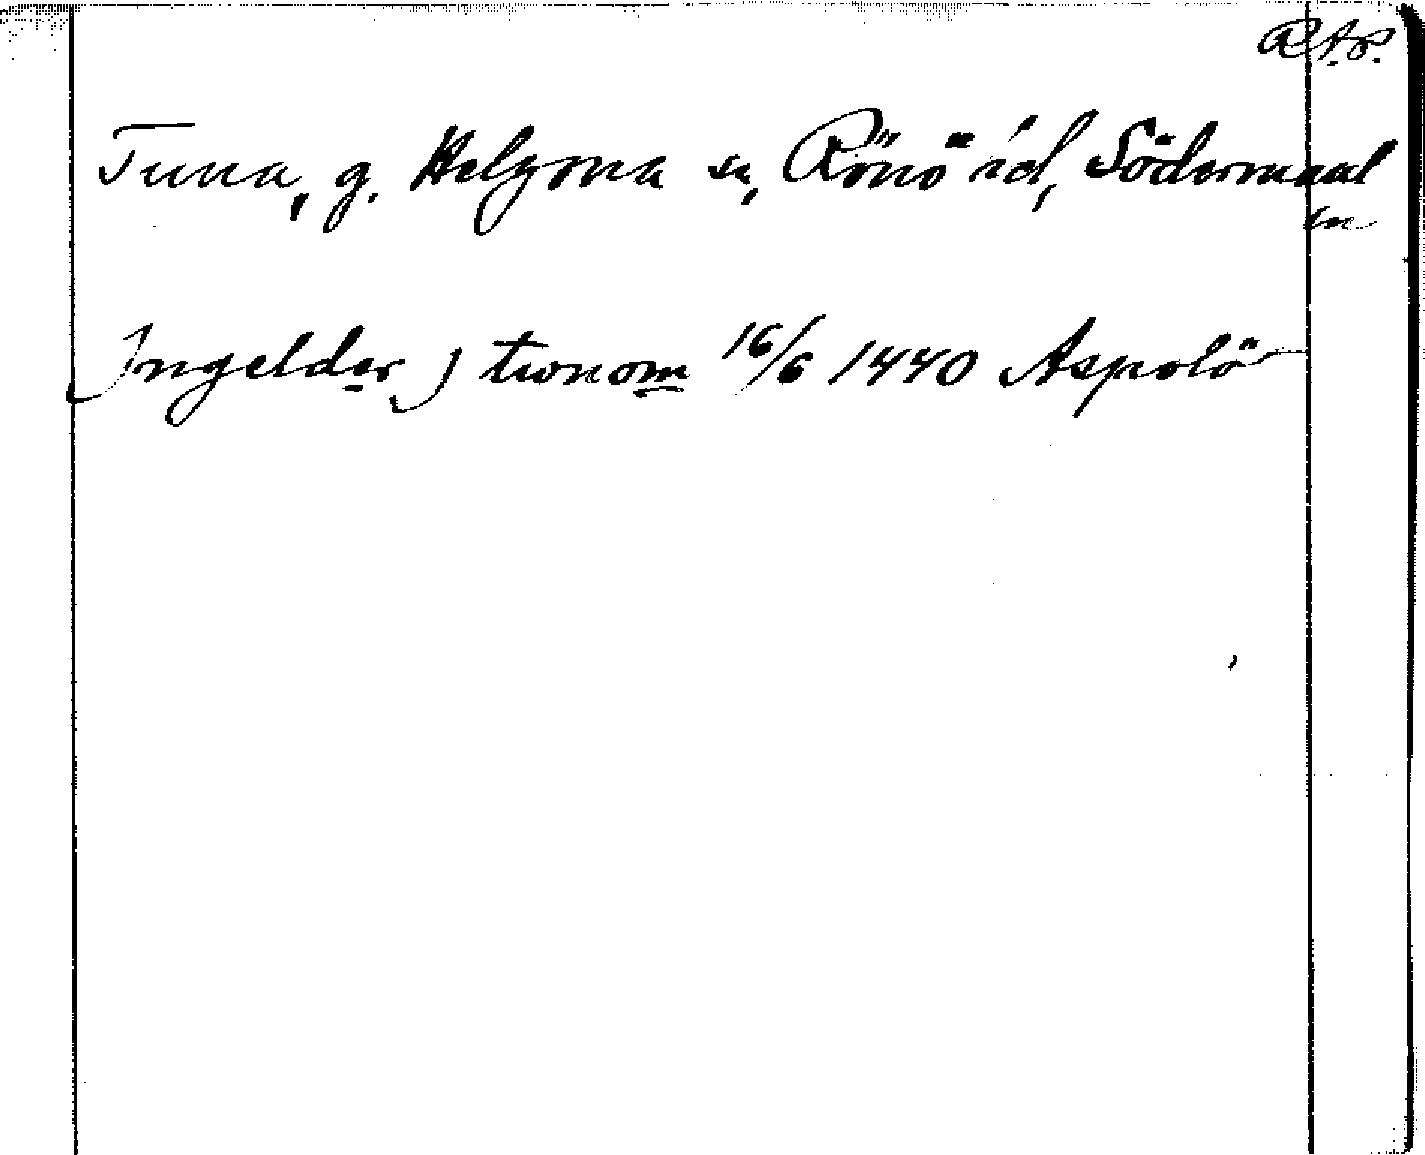 R.A.P.
Tuna, g. Helgona sn, Rönö hd, Södermanl
län
Ingelder J twnom 16/6 1440 Aspolö